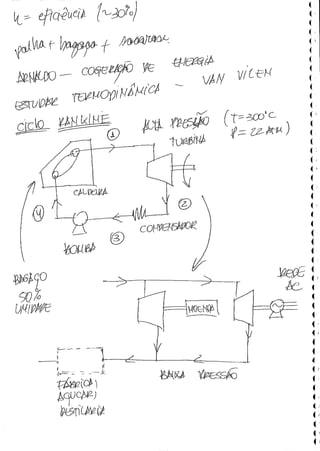 η = eficiência (~30%)
palha + bagaço +
ARNALDO — COGERAÇÃO DE ENERGIA
ESTUDAR TERMODINÂMICA — VAN VILEM
CICLO RANKINE
ALTA PRESSÃO (T=300°C
P=22 ATM)
1
TURBINA
CALDEIRA
4
2
CONDENSADOR
3
BOMBA
BAGAÇO
50%
UMIDADE
REDE
AC
MOENDA
BAIXA PRESSÃO
FÁBRICA,
AÇUCAR,
DESTILARIA